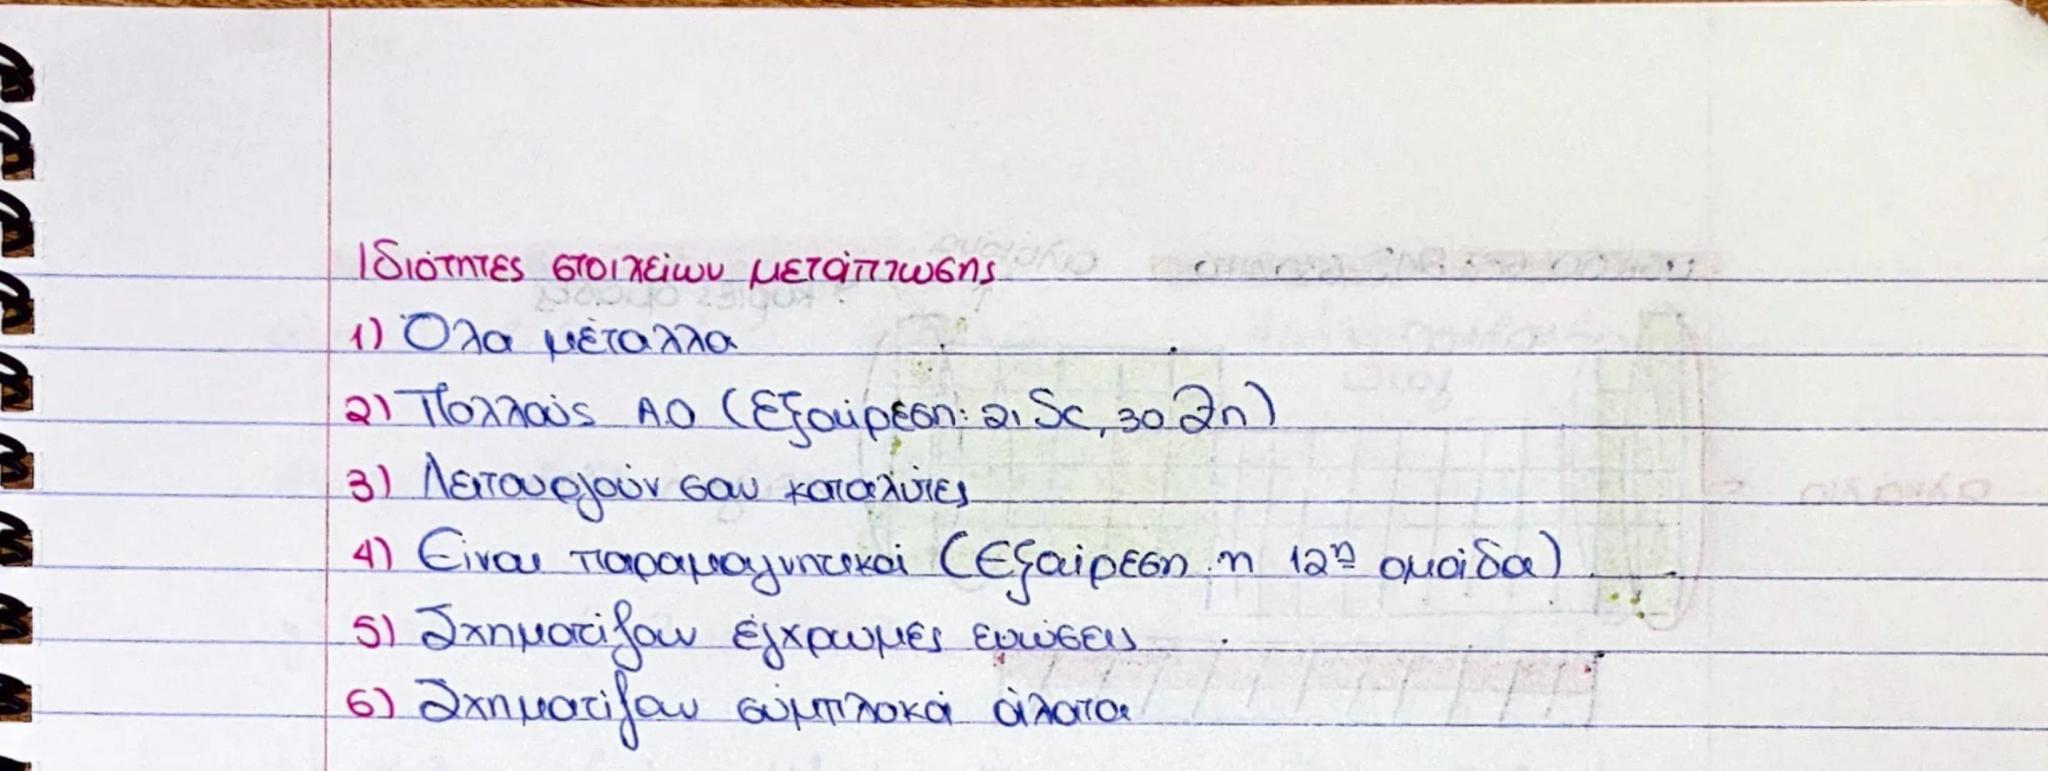 Ιδιότητες στοιχείων μετάπτωσης
1) Όλα μέταλλα
2) Πολλούς Α.Ο (Εξαίρεση: 21Sc, 30Zn)
3) Λειτουργούν σαν καταλύτες
4) Είναι παραμαγνητικά (Εξαίρεση η 12η ομάδα)
5) Σχηματίζουν έγχρωμες ενώσεις
6) Σχηματίζουν σύμπλοκά άλατα